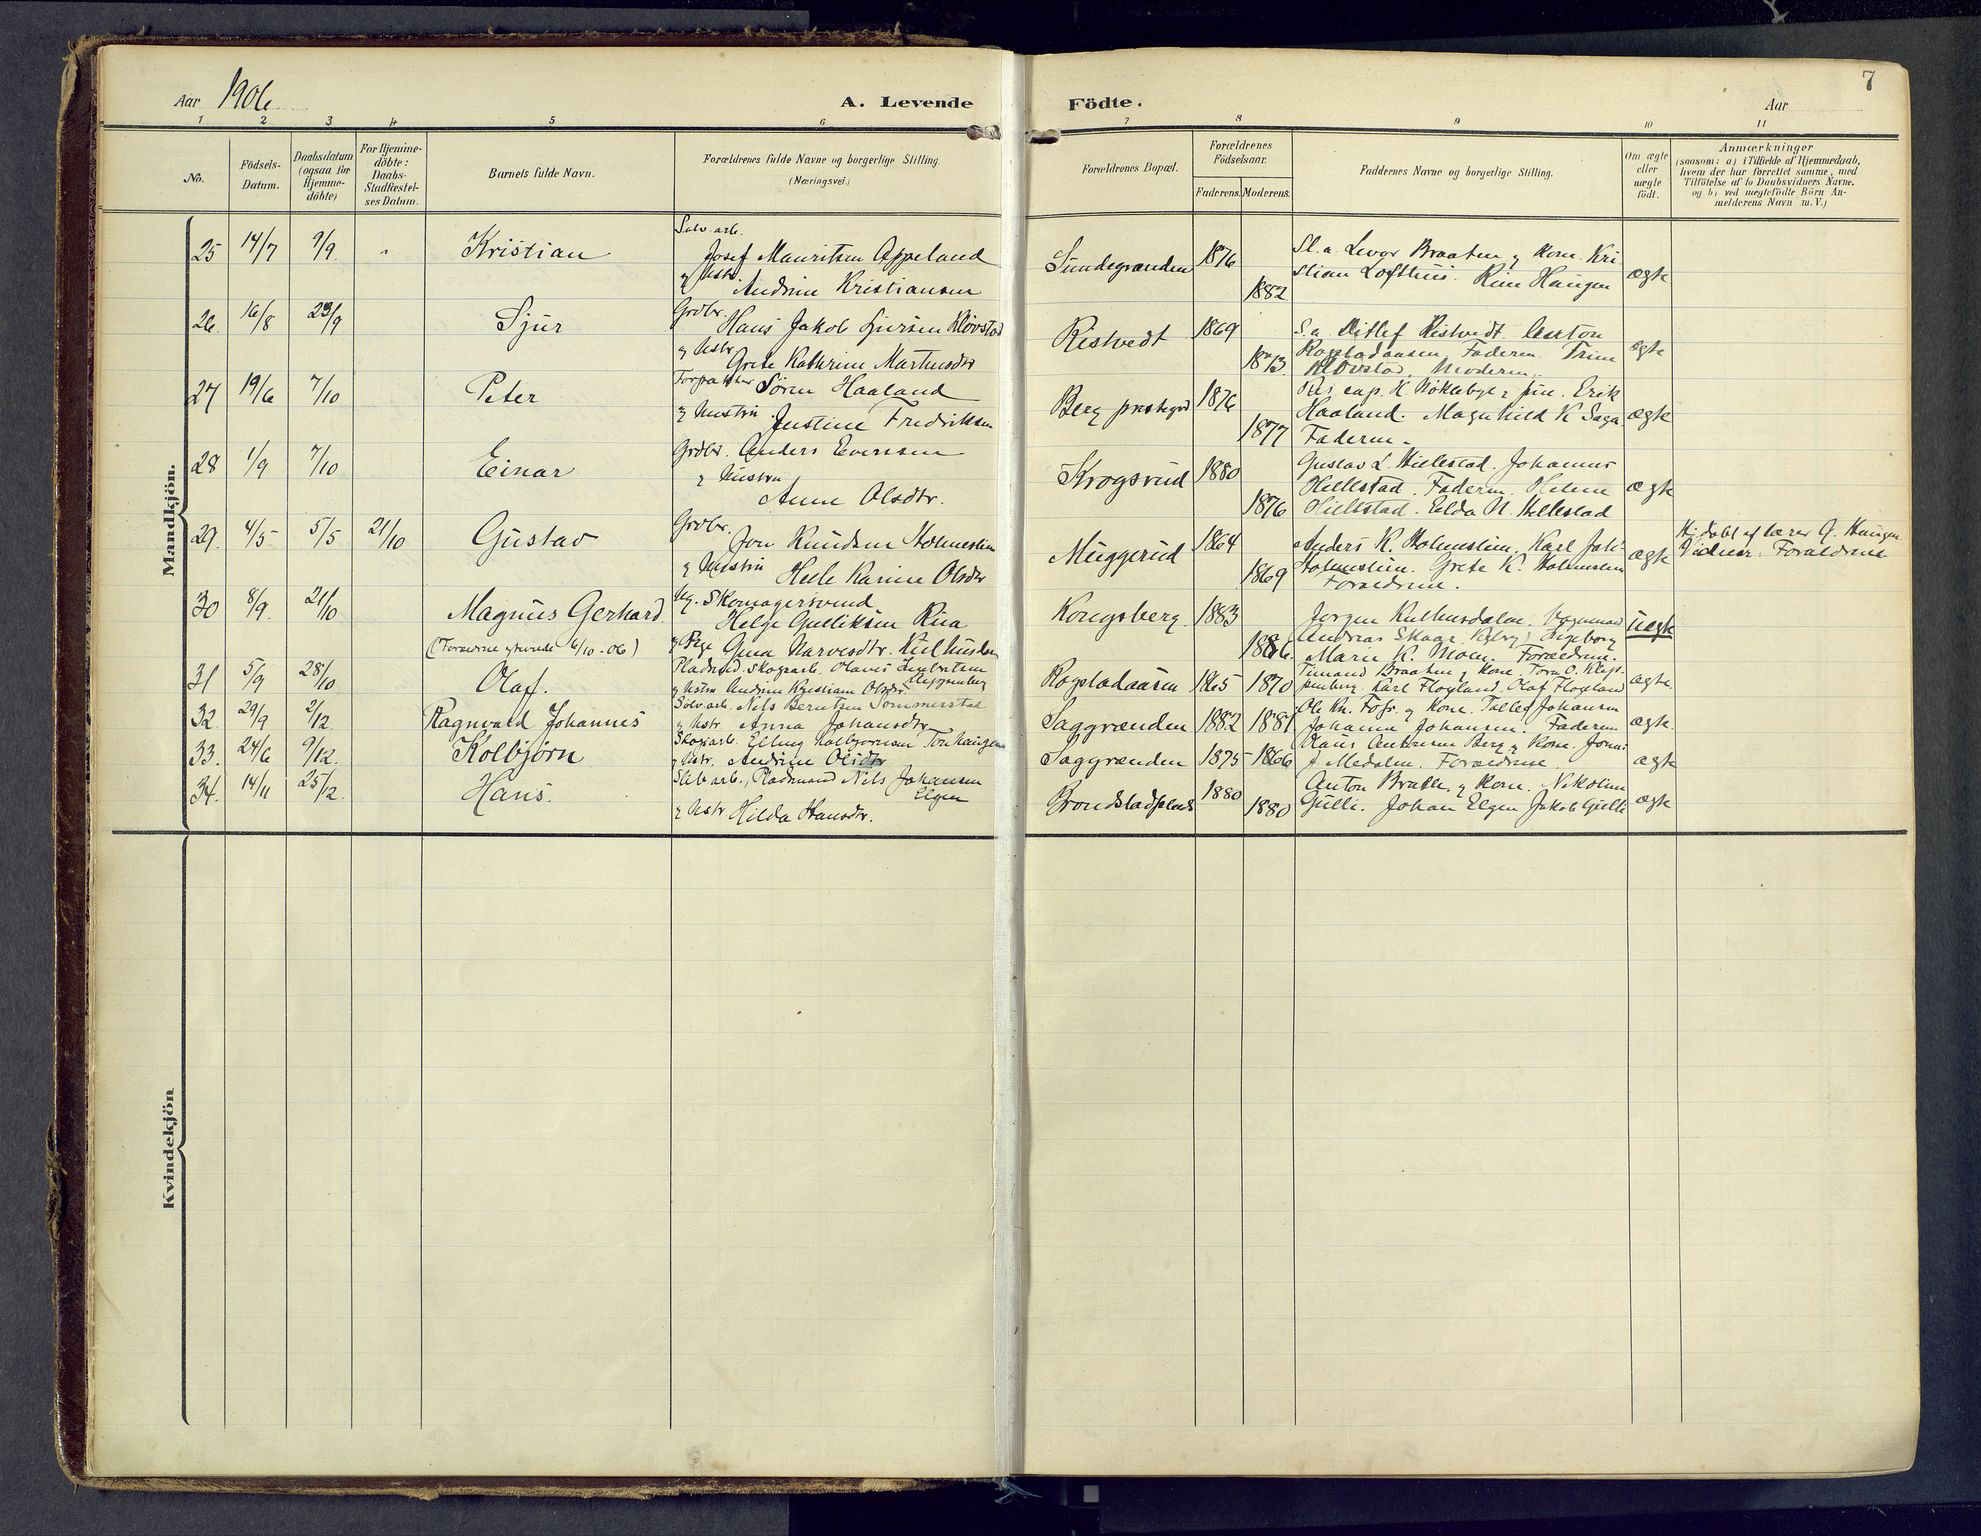 Aar 1906. A. Levende Födte. Aar 7
1 2 3 4 5 6 7 8 9 10 11
No.
Födsels-
Datum.
Daabsdatum
(ogsaa for
Hjemme-
døbte)
For Hjemme-
döbte:
Daabs-
Stadfæstel-
ses Datum.
Barnets fulde Navn.
Forældrenes fulde Navne og borgerlige Stilling.
(Næringsvei.)
Forældrenes Bopæl.
Forældrenes
Födselsaar.
Faderens. Moderens.
Faddernes Navne og borgerlige Stilling.
Om ægte
eller
uægte
födt.
Anmærkninger
(saasom: a) i Tilfælde af Hjemmedaab,
hvem der har forrettet samme, med
Tilføielse af to Daabsvidners Navne,
og b) ved uegtefödte Börn An-
melderens Navn m. V.)
Mandkjön.
25 14/7 9/9. Kristian
Sølv arb.
Josef Mauritsen Appeland
og Ustr
Andrine Kristiansen
Sundegrænden 1876
1882
Sl. a. Levor Braaten og kone. Kri
stian Lofthus. Rine Haugen
ægte
26. 16/8 23/9 Sjur
Grdbr.
Hans Jakob Sjursen Kløvstad
og Ustr
Grete Kathrine Martinsdtr
Ristvedt 1869
1873
S. a. Ditlef Ristvedt. Anton
Rogstadaasen. Faderen. Trine
Kløvstad. Moderen.
ægte
27 19/6 7/10 Peter
Forpakter Søren Haaland
og Hustru
Justine Fredriksen
Berg prestegrd 1876
1877
Res. cap. H Nøkleby jun. Erik
Haaland. Magnhild K Saga
Faderen.
ægte
28 1/9 7/10 Einar
Grdbr. Anders Evensen
og Hustru
Anne Olsdtr.
Krogsrud 1880
1876
Gustav L. Hellestad. Johannes
Hellestad. Faderen. Helene
Hellestad. Elda N. Hellestad
ægte
29. 4/5 5/5 21/10 Gustav
Grdbr.
Jon Knudsen Holmestin
og Hustru
Helle Karine Olsdtr
Muggerud 1864
1869
Anders K. Holmstein. Karl Joh.
Holmstein. Grete K. Holmstein
Forældrene.
ægte
Hj. døbt af lærer G. Haugen
Vidner: Forældrene
30 8/9. 21/10 Magnus Gerhard
(Forældrene gtviede 6/10-06)
Ug. Skomagersvend
Helge Gulliksen Rua
og Pige Gina Narvesdtr. Kulhusdalen
Kongsberg. 1883
1886.
Jørgen Kulhusdalen. Vognmand
Andreas Skaar Kgbrg) Ingeborg
Marie K. Moen. Forældrene.
uægte
31 5/9 28/10 Olaf.
Pladsmd. Skogsarb. Olaves Ingbretsen
Kleppenberg
og Ustru Andrine Kristiane Olsdtr.
Rogstadaasen 1865 1870
Timand Braaten og kone. Tora O. Klep-
penberg. Karl Flogland. Olaf Flogland
ægte.
32. 29/9 2/12 Ragnvald Johannes
Sølv arb. Nils Berntsen Sommerstad
og Ustr. Anna Johansdtr.
Saggrænden 1882 1881
Ole Kr. Fofr. og kone. Tallef Johansen
Johanne Johansen. Faderen
ægte.
33. 24/6 9/12. Kolbjørn
Skogsarb. Elling Kolbjørnsen Torhaugen
og Ustr. Andrine Olsdtr
Saggrænden 1875 1866
Klaus Antonsen Berg og kone. Jonas
J. Medalen. Forældrene.
ægte
34. 14/11 25/12. Hans.
Sølv arb., Pladsmand Nils Johansen
Elgen
og Ustr. Hilda Hansdtr.
1880
1880
Anton Braten og kone. Nikoline
Gulli. Johan Elgen Jakob Gulli
ægte
Kvindekjön